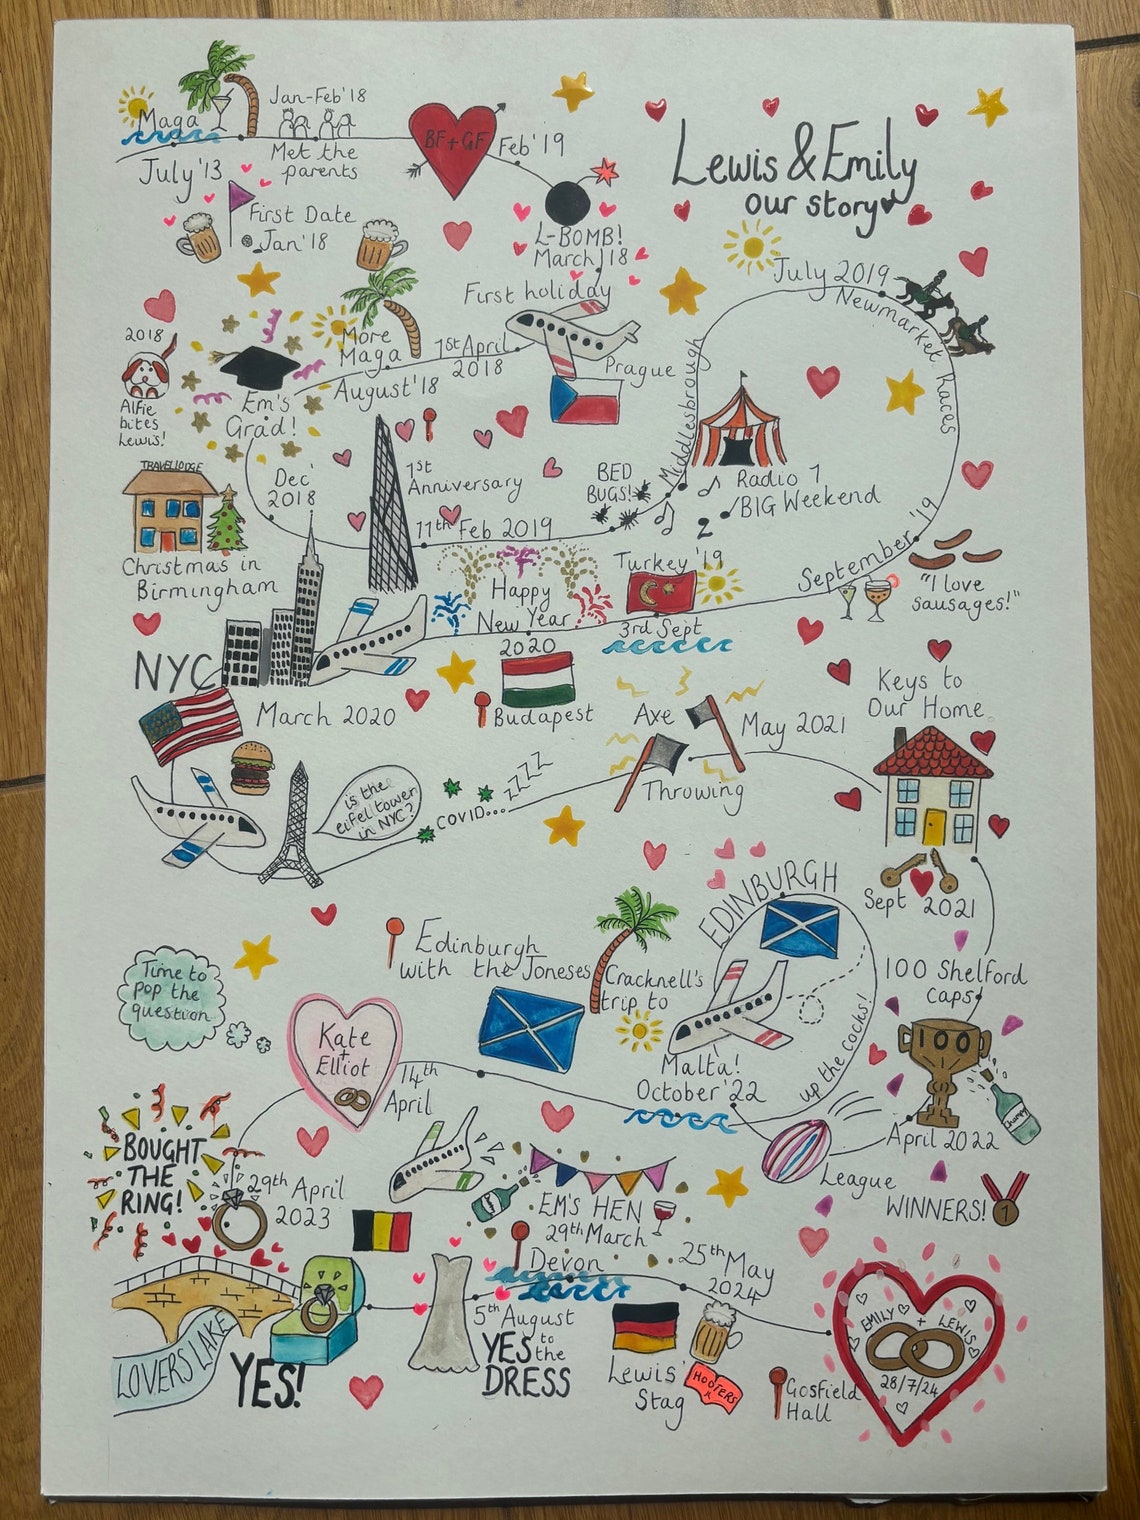 Lewis & Emily
our story
Maga
July '13
Jan-Feb '18
Met the
parents
First Date
Jan '18
BF + GF
Feb '19
L-BOMB!
March '18
First holiday
1st April
2018
Prague
More
Maga
August '18
Em's
Grad!
2018
Alfie
bites
Lewis!
TRAVELLODGE
Christmas in
Birmingham
Dec'
2018
1st
Anniversary
11th Feb 2019
BED
BUGS!
Middlesbrough
Radio 1
BIG Weekend
July 2019
Newmarket Races
September '19
"I love
sausages!"
Turkey '19
3rd Sept
Happy
New Year
2020
Budapest
NYC
March 2020
is the
eiffel tower
in NYC?
COVID...
zzzz
Axe
Throwing
May 2021
Keys to
Our Home
Sept 2021
100 Shelford
caps
100
Champ
April 2022
League
WINNERS!
1
up the cocks!
EDINBURGH
Cracknell's
trip to
Malta!
October '22
Edinburgh
with the Joneses
14th
April
Kate
+
Elliot
Time to
pop the
question
BOUGHT
THE
RING!
29th April
2023
LOVERS LAKE
YES!
5th August
YES to the
DRESS
EM'S HEN
29th March
Devon
25th May
2024
Lewis'
Stag
HOOTERS
Gosfield
Hall
EMILY + LEWIS
28/7/24